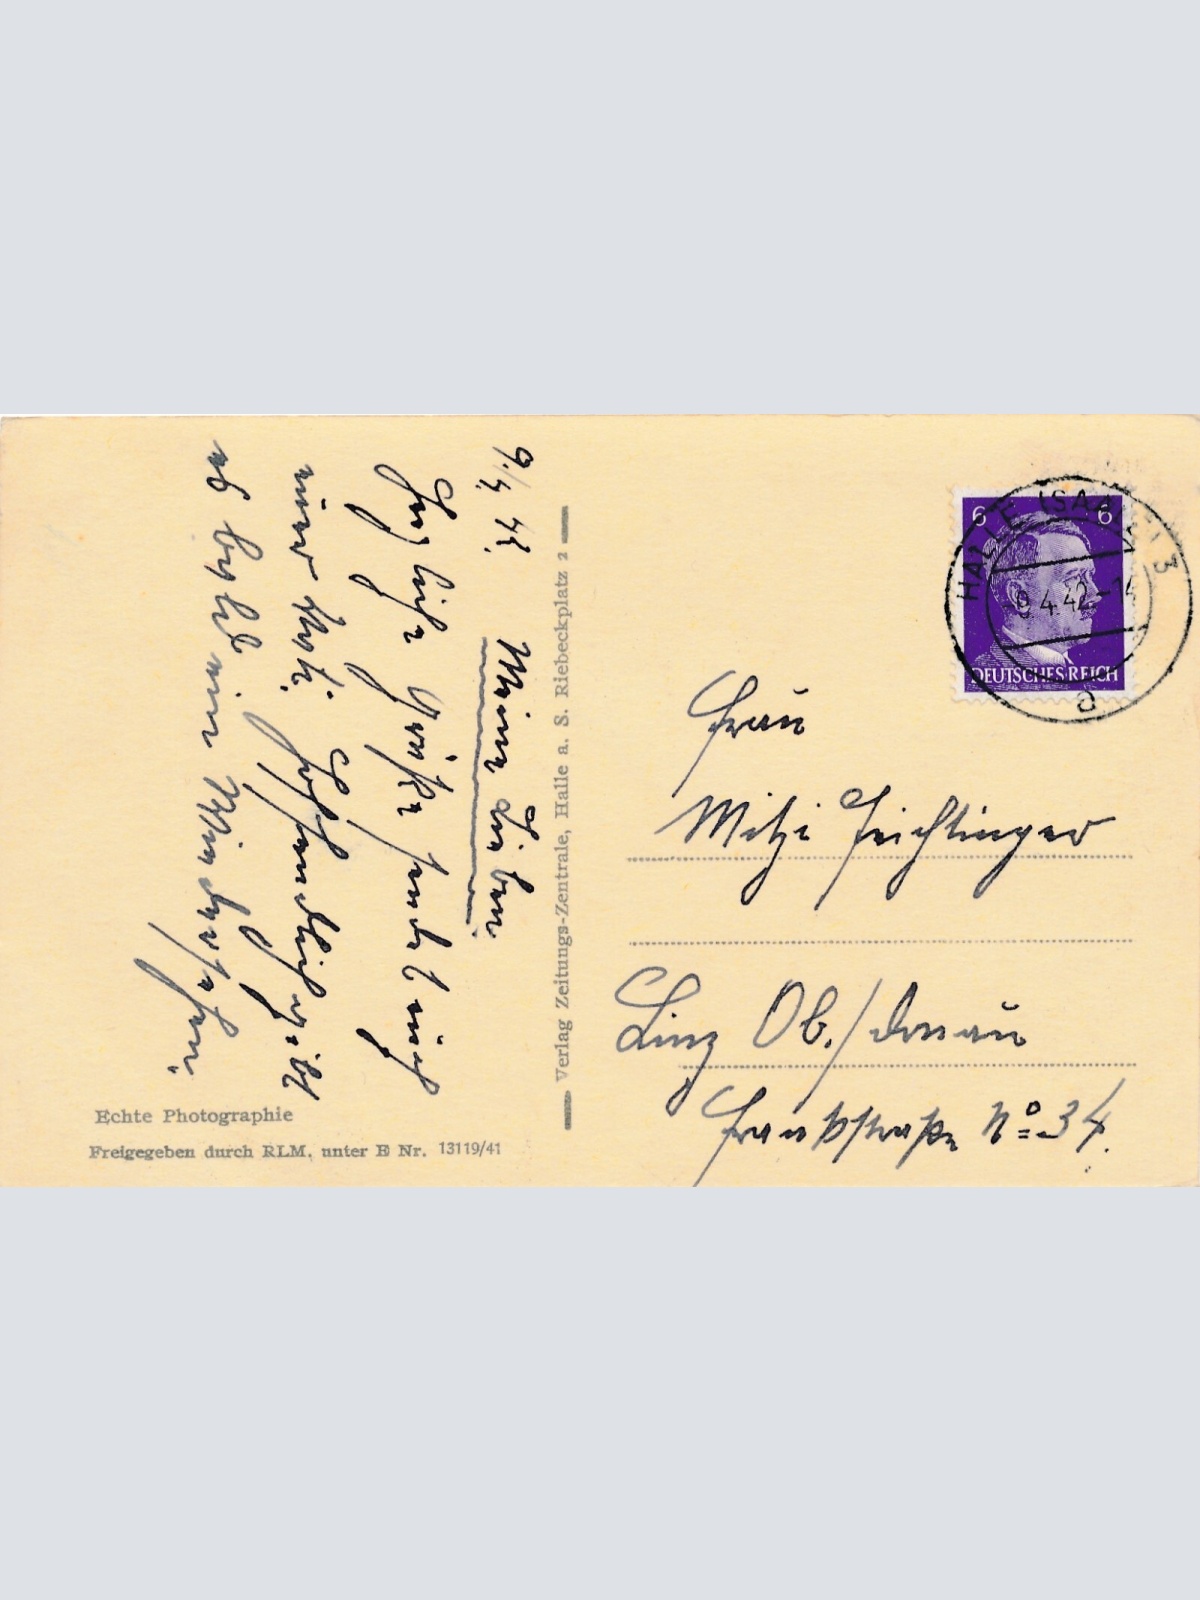 9./4. 42.
Meine Lieben
Herzliche Grüße sendet euch
euer
hoffentlich gibt
es bald ein Wiedersehen
Verlag Zeitungs-Zentrale, Halle a. S. Riebeckplatz 2
Echte Photographie
Freigegeben durch RLM. unter E Nr. 13119/41
6 6
DEUTSCHES REICH
HALLE (SAALE) 3
-9.4.42-14
a
Frau
Mitzi Feichtinger
Linz Ob./Donau
straße No 34.